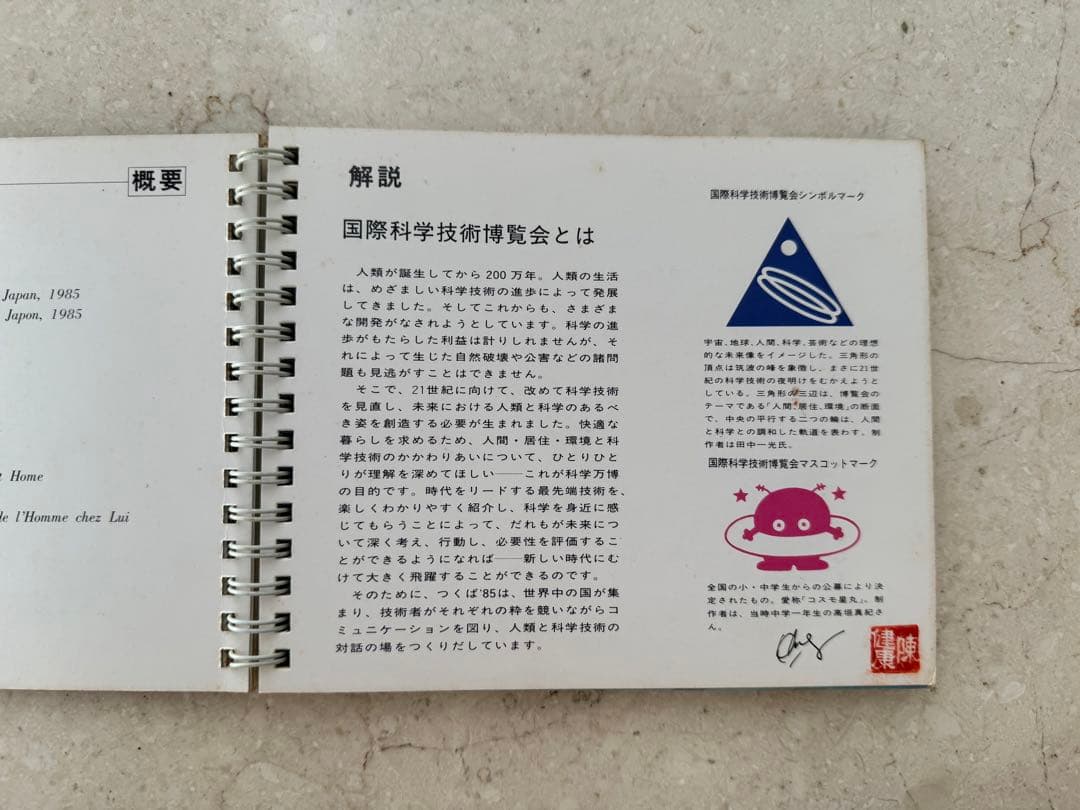 概要
Japan, 1985
Japon, 1985
Home
de l'Homme chez Lui
解説
国際科学技術博覧会とは
人類が誕生してから200万年。人類の生活
は、めざましい科学技術の進歩によって発展
してきました。そしてこれからも、さまざま
な開発がなされようとしています。科学の進
歩がもたらした利益は計りしれませんが、そ
れによって生じた自然破壊や公害などの諸問
題も見逃がすことはできません。
そこで、21世紀に向けて、改めて科学技術
を見直し、未来における人類と科学のあるべ
き姿を創造する必要が生まれました。快適な
暮らしを求めるため、人間・居住・環境と科
学技術のかかわりあいについて、ひとりひと
りが理解を深めてほしい──これが科学万博
の目的です。時代をリードする最先端技術を、
楽しくわかりやすく紹介し、科学を身近に感
じてもらうことによって、だれもが未来につ
いて深く考え、行動し、必要性を評価するこ
とができるようになれば──新しい時代にむ
けて大きく飛躍することができるのです。
そのために、つくば'85は、世界中の国が集
まり、技術者がそれぞれの粋を競いながらコ
ミュニケーションを図り、人類と科学技術の
対話の場をつくりだしています。
国際科学技術博覧会シンボルマーク
宇宙、地球、人間、科学、芸術などの理想
的な未来像をイメージした。三角形の
頂点は筑波の峰を象徴し、まさに21世
紀の科学技術の夜明けをむかえようと
している。三角形の三辺は、博覧会の
テーマである「人間、居住、環境」の断面
で、中央の平行する二つの輪は、人間
と科学との調和した軌道を表わす。制
作者は田中一光氏。
国際科学技術博覧会マスコットマーク
全国の小・中学生からの公募により決
定されたもの。愛称「コスモ星丸」。制
作者は、当時中学一年生の高垣真紀さ
ん。
陳健康